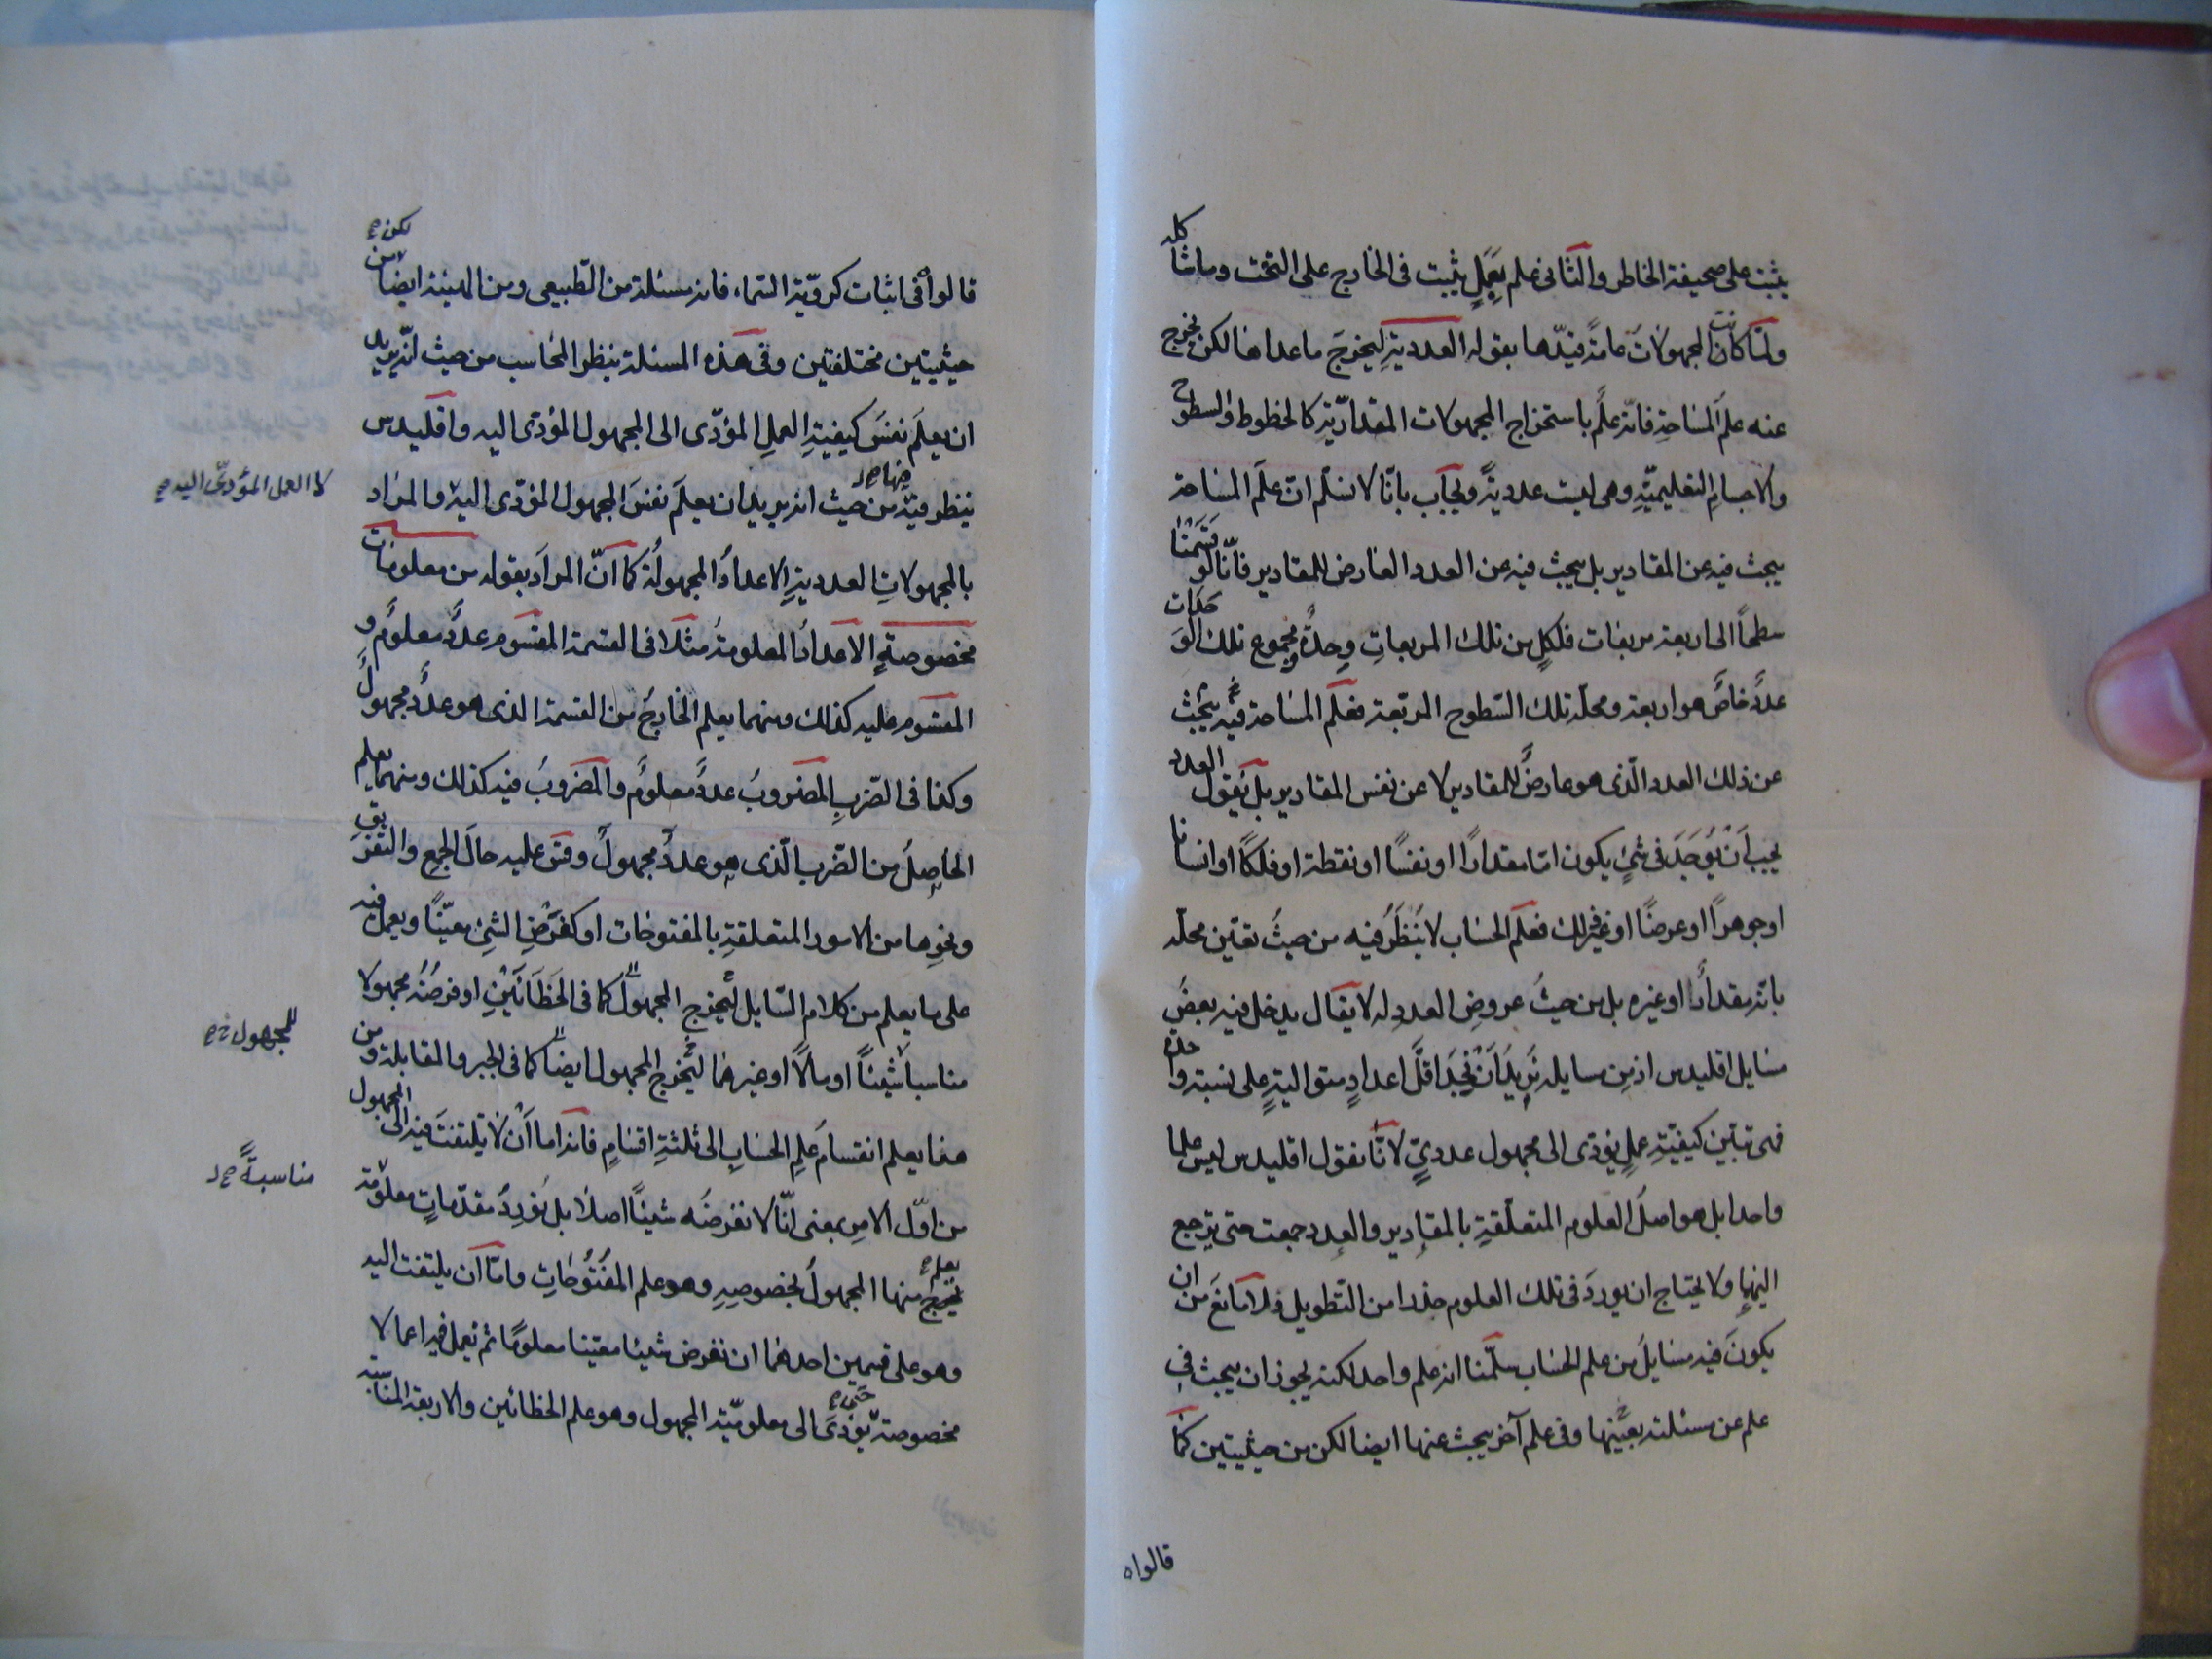 يثبت على صحيفة الخاطر والثانى علم بعمل يثبت فى الخارج على التخت وماشاكله
ولما كانت المجهولات عامة قيدها بقوله العددية ليخرج ما عداها لكن يخرج
عنه علم المساحة فانه علم باستخراج المجهولات المقدارية كالخطوط والسطوح
والاجسام التعليمية وهى ليست عددية ويجاب بانا لا نسلم ان علم المساحة
يبحث فيه عن المقادير بل يبحث فيه عن العدد العارض للمقادير فانا لو قسمنا
سطحا الى اربعة مربعات فلكل من تلك المربعات وحدة ومجموع تلك الوحدات
عدد خاص هو اربعة ومحله تلك السطوح المربعة فعلم المساحة فيه يبحث
عن ذلك العدد الذى هو عارض للمقادير لا عن نفس المقادير بل نقول العدد
يجب ان يوجد فى شئ يكون اما مقدارا او نفسا او نقطة او فلكا او انسانا
او جوهرا او عرضا او غير ذلك فعلم الحساب لا ينظر فيه من حيث تعين محله
بانه مقدار او غيره بل من حيث عروض العدد له لا يقال يدخل فيه بعض
مسايل اقليدس اذ من مسايله نريد ان نجد اقل اعداد متوالية على نسبة واحدة
فهى تبين كيفية عمل يؤدى الى مجهول عددى لانا نقول اقليدس ليس علما
واحدا بل هو اصل العلوم المتعلقة بالمقادير والعدد جمعت حتى يرجع
اليها ولا يحتاج ان يورد فى تلك العلوم حذرا من التطويل ولا مانع من ان
يكون فيه مسايل من علم الحساب سلمنا انه علم واحد لكنه يجوز ان يبحث فى
علم عن مسئلة بعينها وفى علم آخر يبحث عنها ايضا لكن من حيثيتين كما
قالوا
قالوا فى اثبات كروية السماء فانه مسئلة من الطبيعى ومن الهيئة ايضا لكن من
حيثيتين مختلفتين وفى هذه المسئلة ينظر المحاسب من حيث انه يريد
ان يعلم نفس كيفية العمل المؤدى الى المجهول المؤدى اليه واقليدس
ينظر فيه منها من حيث انه يريد ان يعلم نفس المجهول المؤدى اليه والمراد
لا العمل المؤدى اليه
بالمجهولات العددية الاعداد المجهولة كما ان المراد بقوله من معلومات
مخصوصة الاعداد المعلومة مثلا فى القسمة المقسوم عدد معلوم و
المقسوم عليه كذلك ومنهما يعلم الخارج من القسمة الذى هو عدد مجهول
وكذا فى الضرب المضروب عدد معلوم والمضروب فيه كذلك ومنهما يعلم
الحاصل من الضرب الذى هو عدد مجهول وقس عليه حال الجمع والتفريق
ونحوها من الامور المتعلقة بالمفتوحات او كفرض الشئ معينا ويعمل فيه
على ما يعلم من كلام السايل ليخرج المجهول كما فى الخطائين او فرضه مجهولا
للمجهول
مناسبا شيئا او مالا او غيرهما ليخرج المجهول ايضا كما فى الجبر والمقابلة ومن
هنا يعلم انقسام علم الحساب الى ثلثة اقسام فانه اما ان لا يلتفت فيه الى المجهول
مناسبة
من اول الامر بمعنى انا لا نفرضه شيئا اصلا بل نورد مقدمات معلومة
يعلم يخرج منها المجهول بخصوصه وهو علم المفتوحات واما ان يلتفت اليه
وهو على قسمين احدهما ان نفرض شيئا معينا معلوما ثم نعمل فيه اعمالا
مخصوصة حتى يؤدى الى معلومية المجهول وهو علم الخطائين والاربعة المتناسبة